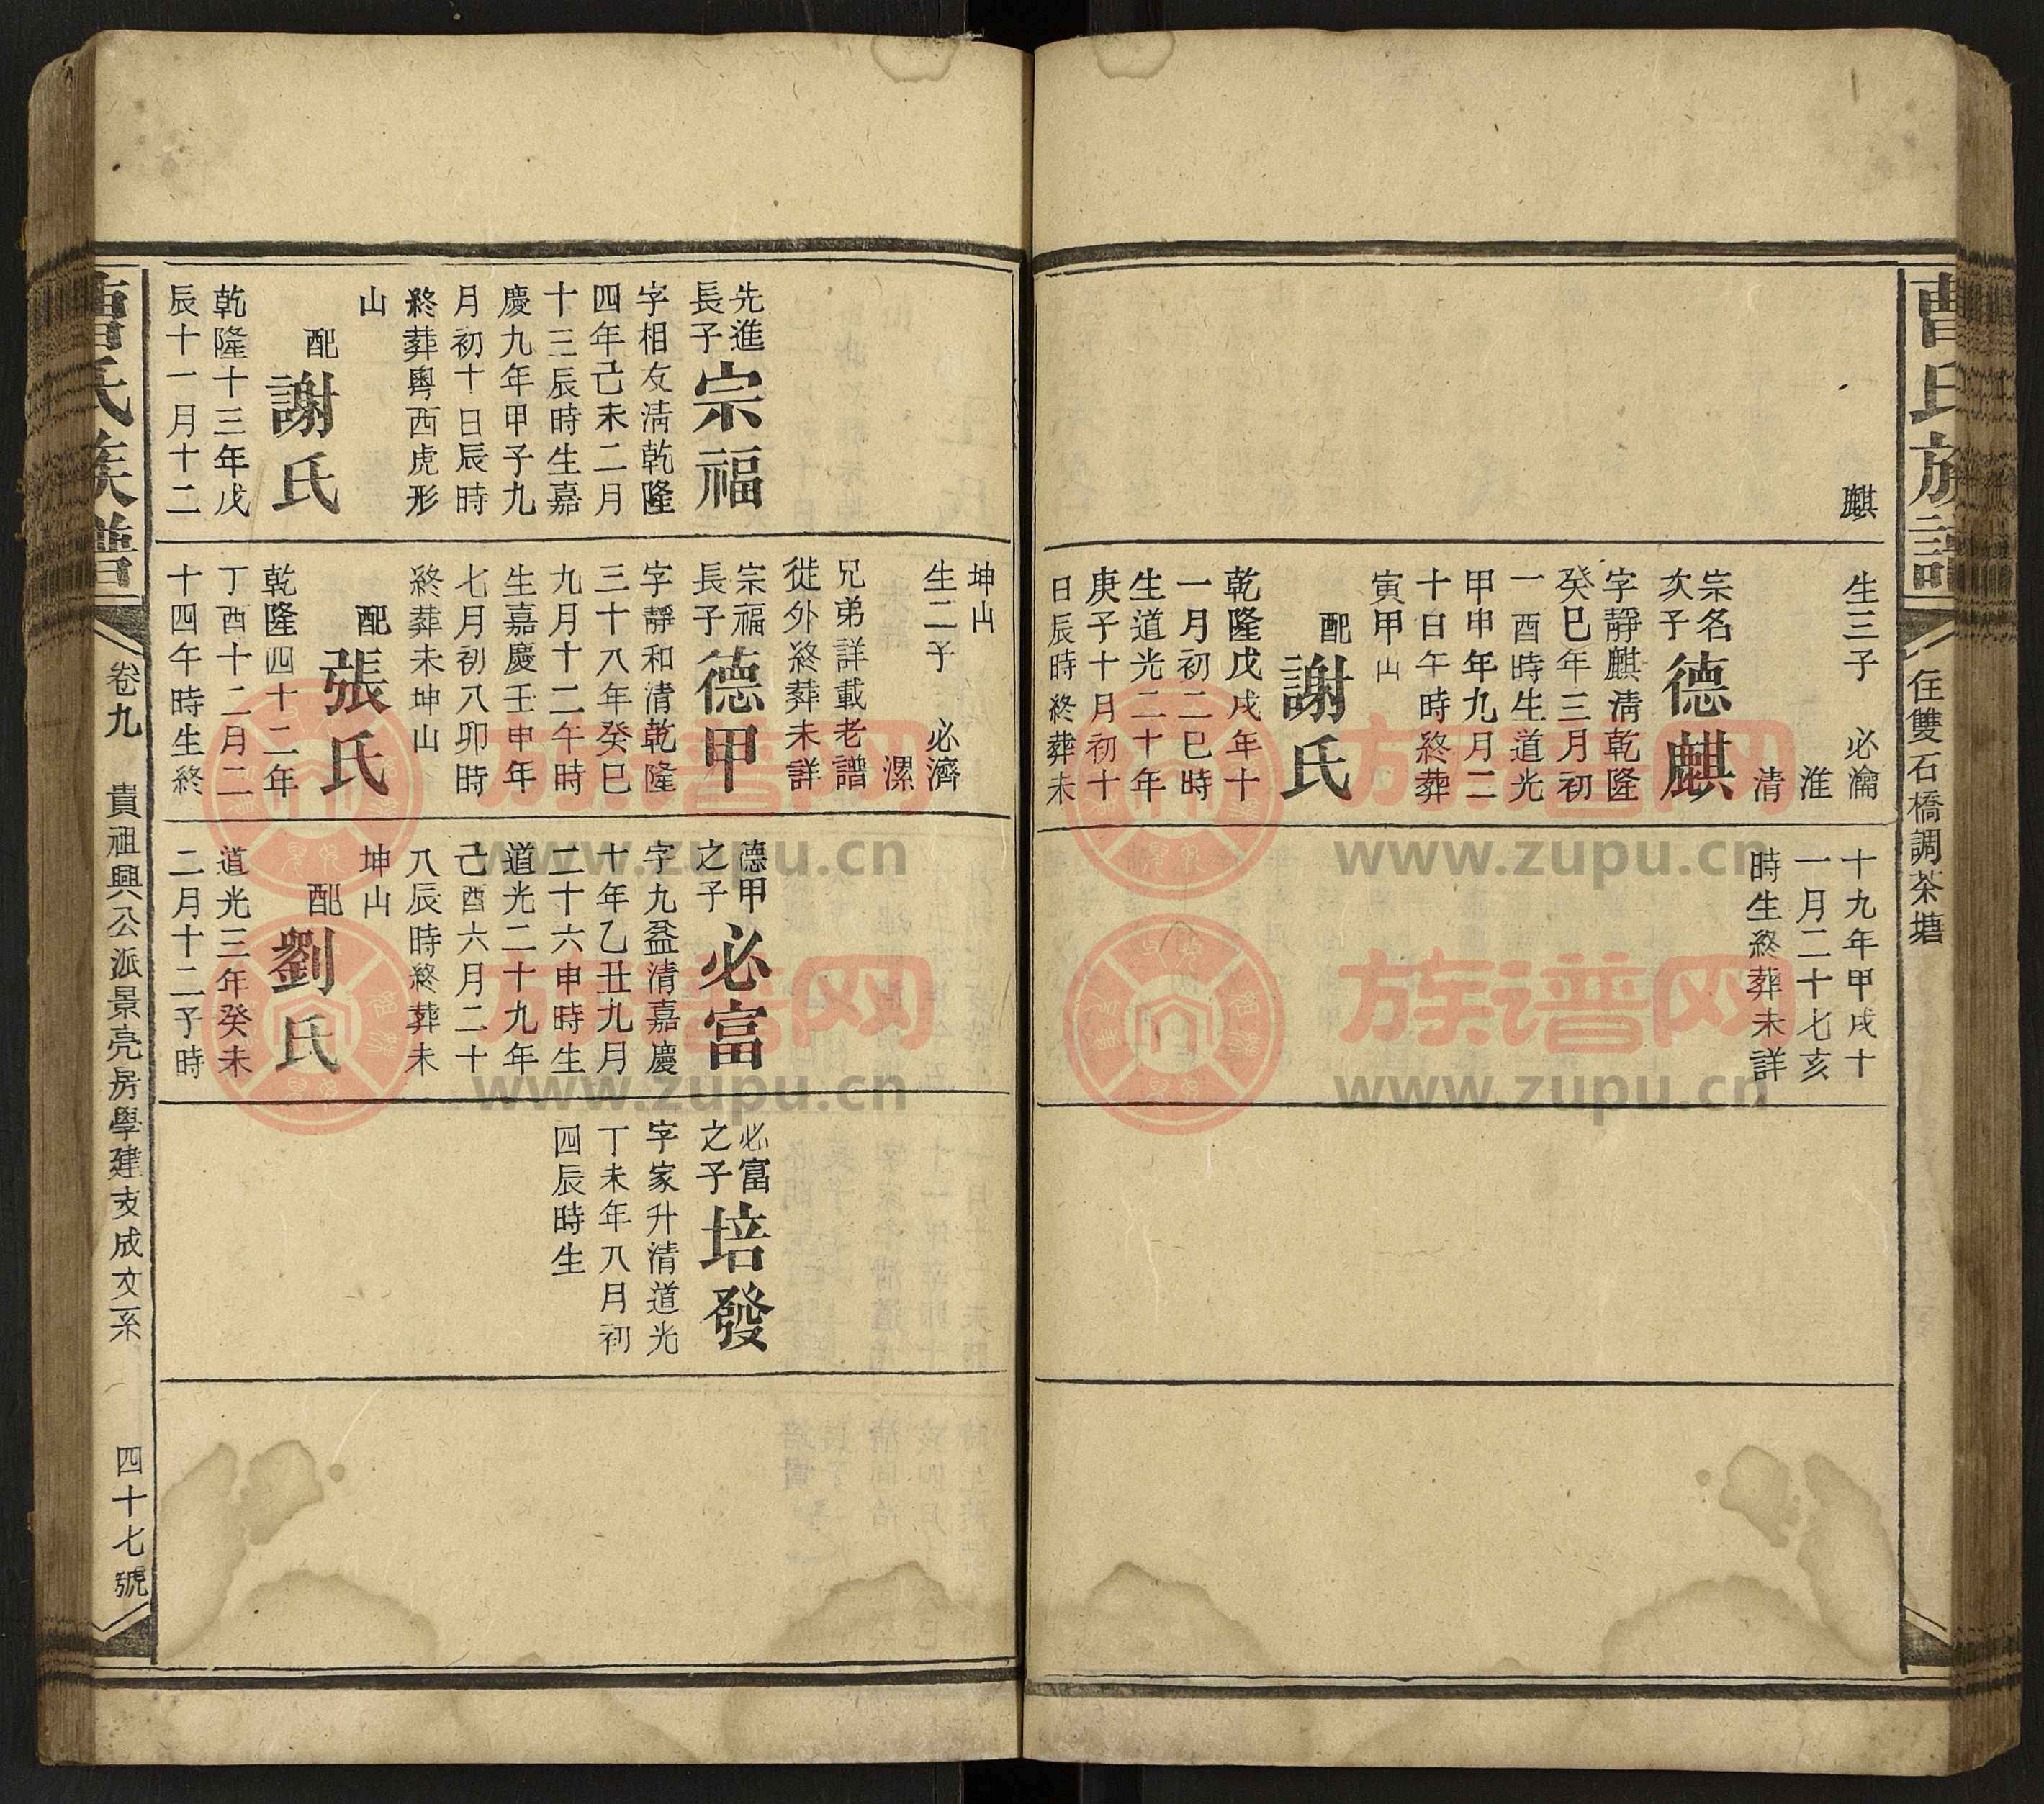 曹氏族譜
住雙石橋調茶塘
麒
生三子
必瀹
淮
清
宗名
次子
德麒
字靜麒清乾隆
癸巳年三月初
一酉時生道光
甲申年九月二
十日午時終葬
寅甲山
配
謝氏
乾隆戊戌年十
一月初二巳時
生道光二十年
庚子十月初十
日辰時終葬未
十九年甲戌十
一月二十七亥
時生終葬未詳
先進
長子
宗福
字相友清乾隆
四年己未二月
十三辰時生嘉
慶九年甲子九
月初十日辰時
終葬粵西虎形
山
配
謝氏
乾隆十三年戊
辰十一月十二
坤山
生二子
必濟
漯
兄弟詳載老譜
徙外終葬未詳
宗福
長子
德甲
字靜和清乾隆
三十八年癸巳
九月十二午時
生嘉慶壬申年
七月初八卯時
終葬未坤山
配
張氏
乾隆四十二年
丁酉十二月二
十四午時生終
德甲
之子
必富
字九盈清嘉慶
十年乙丑九月
二十六申時生
道光二十九年
己酉六月二十
八辰時終葬未
坤山
配
劉氏
道光三年癸未
二月十二子時
必富
之子
培發
字家升清道光
丁未年八月初
四辰時生
曹氏族譜
卷九
貴祖興公派景亮房學建支成文系
四十七號
族谱网
www.zupu.cn
族谱网
www.zupu.cn
族谱网
www.zupu.cn
族谱网
www.zupu.cn